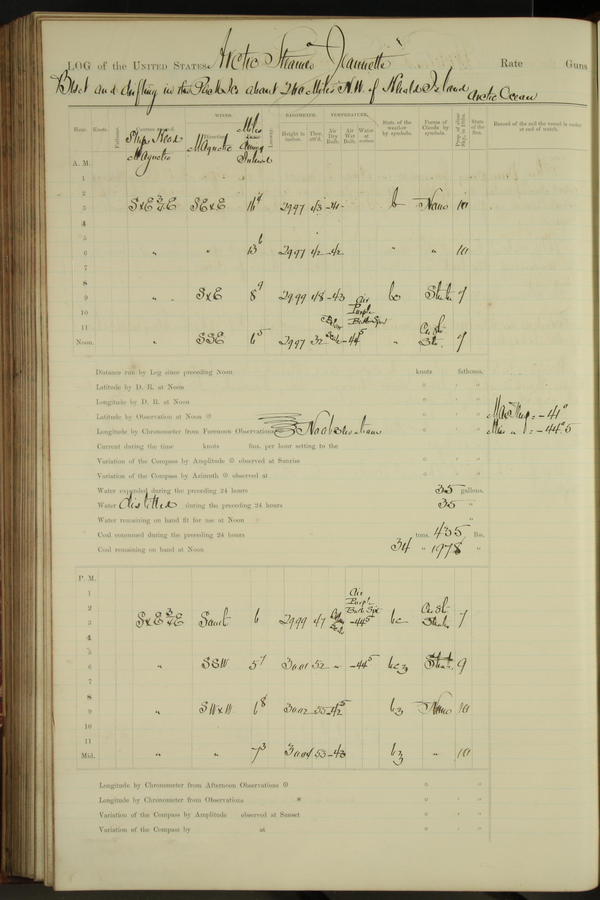 LOG of the UNITED STATES Arctic Steamer Jeannette Rate Guns
Beset and drifting in the Pack Ice about 240 Miles N.W. of Herald Island Arctic Ocean
WINDS. BAROMETER. TEMPERATURE.
Hour. Knots. Fathoms. Ship's Head Magnetic Direction Magnetic Miles during Interval Leeway. Height in inches. Ther. att'd. Air Dry Bulb. Air Wet Bulb. Water at surface. State of the weather by symbols. Forms of Clouds by symbols. Prop. of clear Sky, in 10ths. State of the Sea. Record of the sail the vessel is under at end of watch.
A. M.
1
2
3 SxE 3/4 E SExE 16 4 2997 43 -41 b None 10
4
5
6 " " 13 6 2997 42 -42 " " 10
7
8
9 " SxE 8 9 2999 48 -43 bc Strat 7
10 Air Purple
11 Below
Noon. " SSE 6 5 2997 32 -44 5 " Cu St 7
Distance run by Log since preceding Noon knots fathoms.
Latitude by D. R. at Noon ° ' "
Longitude by D. R. at Noon ° ' "
Latitude by Observation at Noon ⊙ ° ' " Max Temp = -41°
Longitude by Chronometer from Forenoon Observations No observations ° ' " Min " = -44.5
Current during the time knots fms. per hour setting to the
Variation of the Compass by Amplitude ⊙ observed at Sunrise ° ' "
Variation of the Compass by Azimuth ⊙ observed at ° ' "
Water expended during the preceding 24 hours 35 gallons.
Water distilled during the preceding 24 hours 35 "
Water remaining on hand fit for use at Noon "
Coal consumed during the preceding 24 hours tons. 435 lbs.
Coal remaining on hand at Noon 34 " 1978 "
P. M.
1 Air
2 Purple
3 SxE 3/4 E South 6 2999 47 -44 5 bc Cu St 7
4
5
6 " SSW 5 7 3001 52 " -44 5 bcz Strat 9
7
8
9 " SWxW 6 8 3002 55 -42 5 bz None 10
10
11
Mid. " " 7 3 3004 53 -43 bz " 10
Longitude by Chronometer from Afternoon Observations ⊙ ° ' "
Longitude by Chronometer from Observations * ° ' "
Variation of the Compass by Amplitude observed at Sunset ° ' "
Variation of the Compass by at ° ' "